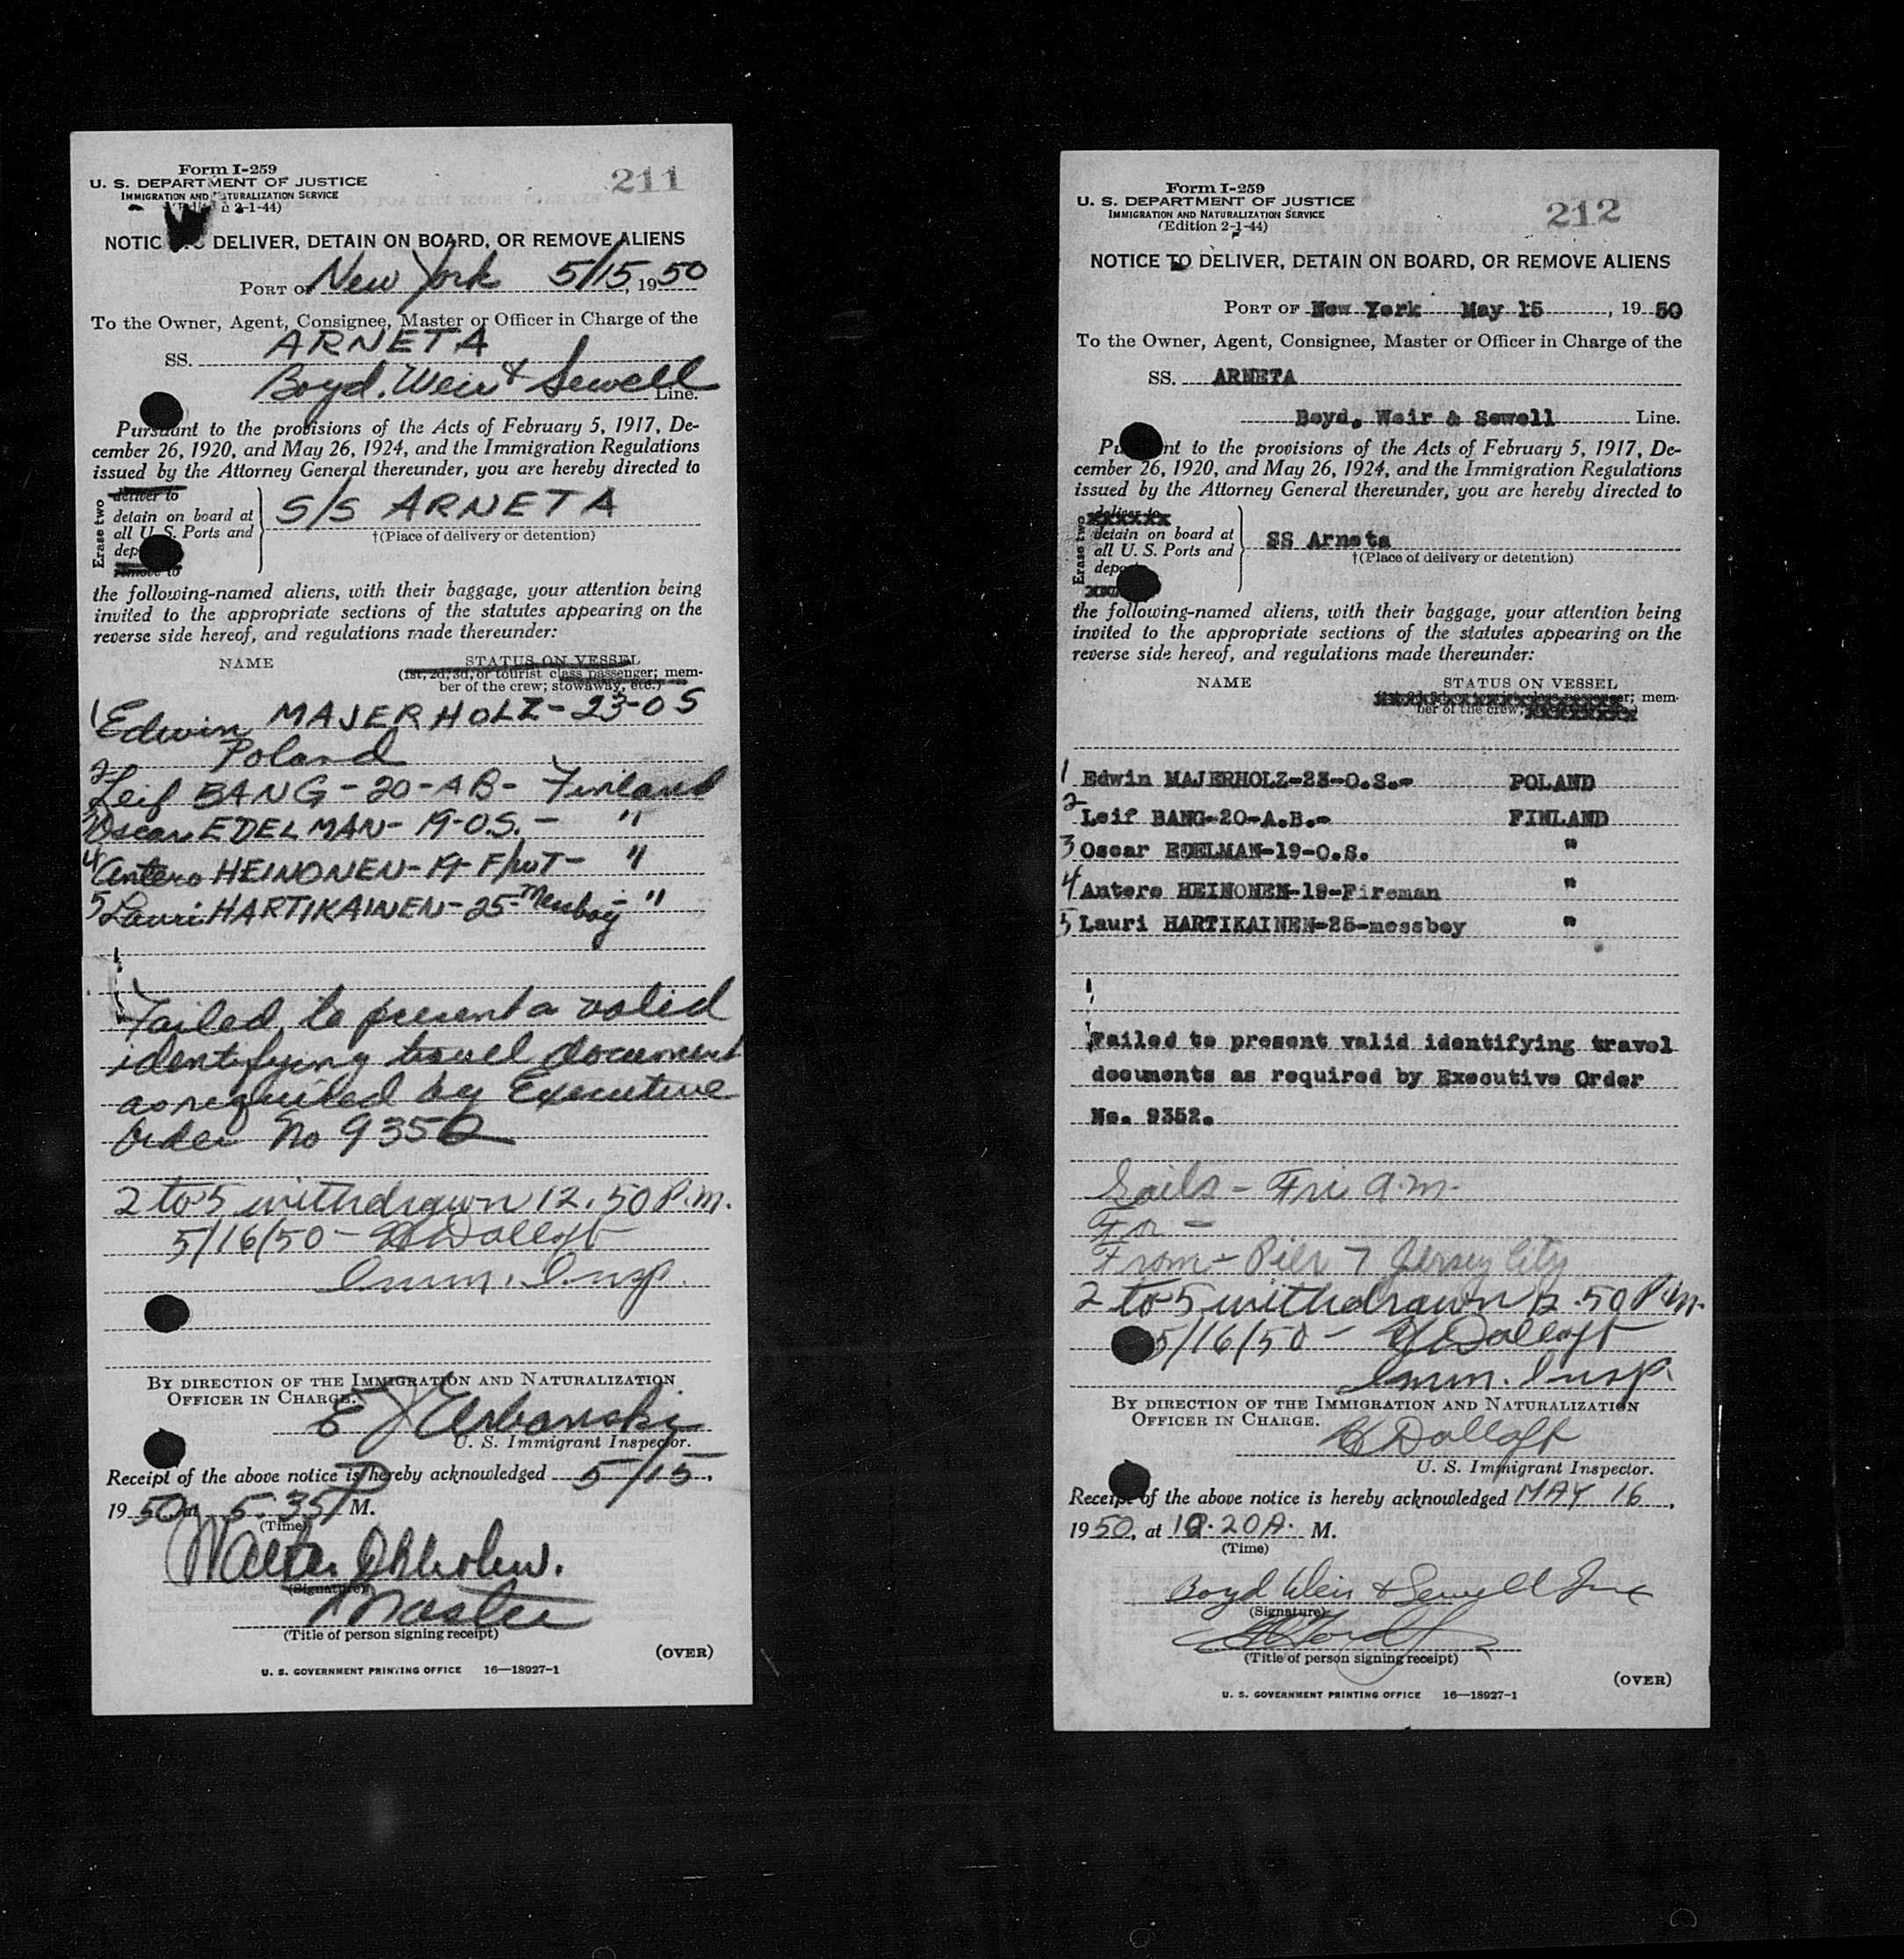 Form I-259
U. S. DEPARTMENT OF JUSTICE
IMMIGRATION AND NATURALIZATION SERVICE
2-1-44)
211
NOTIC DELIVER, DETAIN ON BOARD, OR REMOVE ALIENS
PORT OF New York 5/15, 1950
To the Owner, Agent, Consignee, Master or Officer in Charge of the
SS. ARNETA
Boyd, Weir & Sewell Line.
Pursuant to the provisions of the Acts of February 5, 1917, De-
cember 26, 1920, and May 26, 1924, and the Immigration Regulations
issued by the Attorney General thereunder, you are hereby directed to
Erase two
deliver to
detain on board at
all U. S. Ports and
dep
remove to
S/S ARNETA
†(Place of delivery or detention)
the following-named aliens, with their baggage, your attention being
invited to the appropriate sections of the statutes appearing on the
reverse side hereof, and regulations made thereunder:
NAME STATUS ON VESSEL
(1st, 2d, 3d, or tourist class passenger; mem-
ber of the crew; stowaway, etc.)
1 Edwin MAJERHOLZ-23-OS
Poland
2 Leif BANG-20-AB- Finland
3 Oscar EDELMAN-19-O.S.- "
4 Antero HEINONEN-19-F/WT- "
5 Lauri HARTIKAINEN-25-Messboy- "
Failed to present a valid
identifying travel document
as required by Executive
Order No 9352
2 to 5 withdrawn 12.50 P.M.
5/16/50 - Dolloft
Imm. Insp.
BY DIRECTION OF THE IMMIGRATION AND NATURALIZATION
OFFICER IN CHARGE.
E J Urbanski
U. S. Immigrant Inspector.
Receipt of the above notice is hereby acknowledged 5/15,
1950 at 5:35 P M.
(Time)
Walter
(Signature)
Master
(Title of person signing receipt)
(OVER)
U. S. GOVERNMENT PRINTING OFFICE 16—18927-1
Form I-259
U. S. DEPARTMENT OF JUSTICE
IMMIGRATION AND NATURALIZATION SERVICE
(Edition 2-1-44)
212
NOTICE TO DELIVER, DETAIN ON BOARD, OR REMOVE ALIENS
PORT OF New York May 15, 1950
To the Owner, Agent, Consignee, Master or Officer in Charge of the
SS. ARNETA
Boyd, Weir & Sewell Line.
Pu nt to the provisions of the Acts of February 5, 1917, De-
cember 26, 1920, and May 26, 1924, and the Immigration Regulations
issued by the Attorney General thereunder, you are hereby directed to
Erase two
deliver to
detain on board at
all U. S. Ports and
depo
SS Arneta
†(Place of delivery or detention)
the following-named aliens, with their baggage, your attention being
invited to the appropriate sections of the statutes appearing on the
reverse side hereof, and regulations made thereunder:
NAME STATUS ON VESSEL
(1st, 2d, 3d, or tourist class passenger; mem-
ber of the crew;
1 Edwin MAJERHOLZ-23-O.S.- POLAND
2 Leif BANG-20-A.B.- FINLAND
3 Oscar EDELMAN-19-O.S. "
4 Antero HEINONEN-19-Fireman "
5 Lauri HARTIKAINEN-25-messboy "
Failed to present valid identifying travel
documents as required by Executive Order
No. 9352.
Sails - Fri a.m.
For -
From - Pier 7 Jersey City
2 to 5 withdrawn 12.50 P.M.
5/16/50 - Dolloft
Imm. Insp.
BY DIRECTION OF THE IMMIGRATION AND NATURALIZATION
OFFICER IN CHARGE.
Dolloft
U. S. Immigrant Inspector.
Receipt of the above notice is hereby acknowledged MAY 16,
1950, at 10.20 A. M.
(Time)
Boyd Weir & Sewell Inc
(Signature)
(Title of person signing receipt)
(OVER)
U. S. GOVERNMENT PRINTING OFFICE 16—18927-1